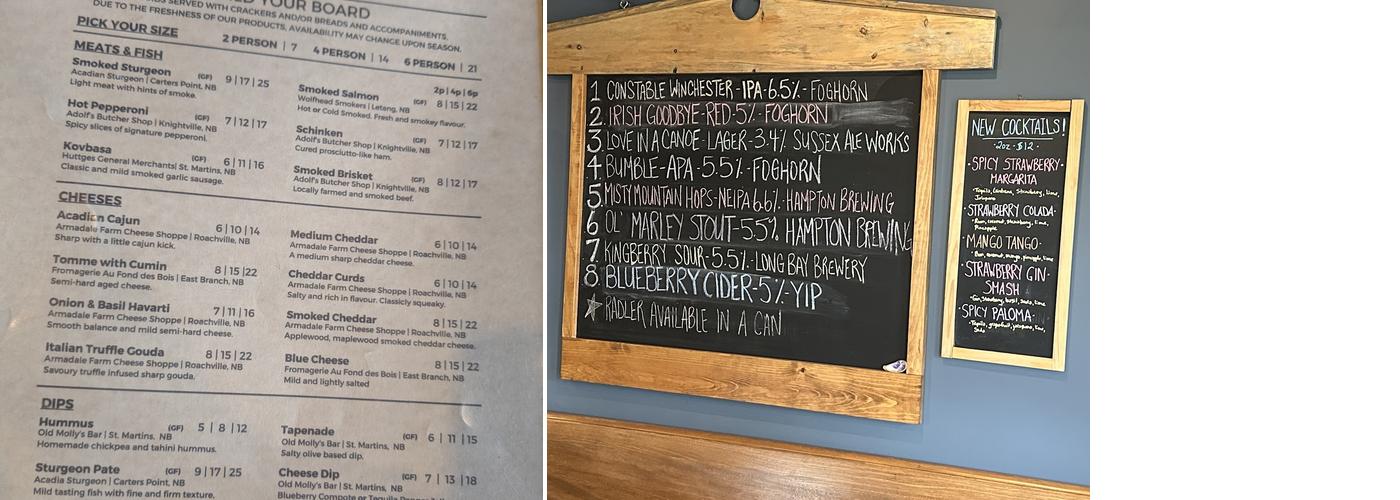 YOUR BOARD
SERVED WITH CRACKERS AND/OR BREADS AND ACCOMPANIMENTS.
DUE TO THE FRESHNESS OF OUR PRODUCTS, AVAILABILITY MAY CHANGE UPON SEASON.
PICK YOUR SIZE 2 PERSON | 7 4 PERSON | 14 6 PERSON | 21
MEATS & FISH
2p | 4p | 6p
Smoked Sturgeon (GF) 9 | 17 | 25
Acadian Sturgeon | Carters Point, NB
Light meat with hints of smoke.
Hot Pepperoni (GF) 7 | 12 | 17
Adolf's Butcher Shop | Knightville, NB
Spicy slices of signature pepperoni.
Kovbasa (GF) 6 | 11 | 16
Huttges General Merchants| St. Martins, NB
Classic and mild smoked garlic sausage.
Smoked Salmon (GF) 8 | 15 | 22
Wolfhead Smokers | Letang, NB
Hot or Cold Smoked. Fresh and smokey flavour.
Schinken (GF) 7 | 12 | 17
Adolf's Butcher Shop | Knightville, NB
Cured prosciutto-like ham.
Smoked Brisket (GF) 8 | 12 | 17
Adolf's Butcher Shop | Knightville, NB
Locally farmed and smoked beef.
CHEESES
Acadian Cajun 6 | 10 | 14
Armadale Farm Cheese Shoppe | Roachville, NB
Sharp with a little cajun kick.
Tomme with Cumin 8 | 15 |22
Fromagerie Au Fond des Bois | East Branch, NB
Semi-hard aged cheese.
Onion & Basil Havarti 7 | 11 | 16
Armadale Farm Cheese Shoppe | Roachville, NB
Smooth balance and mild semi-hard cheese.
Italian Truffle Gouda 8 | 15 | 22
Armadale Farm Cheese Shoppe | Roachville, NB
Savoury truffle infused sharp gouda.
Medium Cheddar 6 | 10 | 14
Armadale Farm Cheese Shoppe | Roachville, NB
A medium sharp cheddar cheese.
Cheddar Curds 6 | 10 | 14
Armadale Farm Cheese Shoppe | Roachville, NB
Salty and rich in flavour. Classicly squeaky.
Smoked Cheddar 8 | 15 | 22
Armadale Farm Cheese Shoppe | Roachville, NB
Applewood, maplewood smoked cheddar cheese.
Blue Cheese 8 | 15 | 22
Fromagerie Au Fond des Bois | East Branch, NB
Mild and lightly salted
DIPS
Hummus (GF) 5 | 8 | 12
Old Molly's Bar | St. Martins, NB
Homemade chickpea and tahini hummus.
Sturgeon Pate (GF) 9 | 17 | 25
Acadia Sturgeon | Carters Point, NB
Mild tasting fish with fine and firm texture.
Tapenade (GF) 6 | 11 | 15
Old Molly's Bar | St. Martins, NB
Salty olive based dip.
Cheese Dip (GF) 7 | 13 | 18
Old Molly's Bar | St. Martins, NB
Blueberry Compote or Tequila
1 CONSTABLE WINCHESTER - IPA - 6.5% - FOGHORN
2. IRISH GOODBYE - RED - 5% - FOGHORN
3. LOVE IN A CANOE - LAGER - 3.4% SUSSEX ALE WORKS
4 BUMBLE - APA - 5.5% - FOGHORN
5. MISTY MOUNTAIN HOPS - NEIPA 6.6% - HAMPTON BREWING
6 OL' MARLEY STOUT - 5.5% HAMPTON BREWING
7. KINGBERRY SOUR - 5.5% - LONG BAY BREWERY
8. BLUEBERRY CIDER - 5% - YIP
☆ RADLER AVAILABLE IN A CAN
NEW COCKTAILS!
· 2oz · $12 ·
· SPICY STRAWBERRY ·
MARGARITA
Strawberry, lime,
Jalapeno
· STRAWBERRY COLADA ·
· Rum, coconut, strawberry, lime,
Pineapple
· MANGO TANGO ·
· Rum, coconut, mango, pineapple, lime
· STRAWBERRY GIN ·
SMASH
· Gin, Strawberry, basil, soda, lime
· SPICY PALOMA ·
· Tequila, grapefruit, jalapeno, lime,
Soda